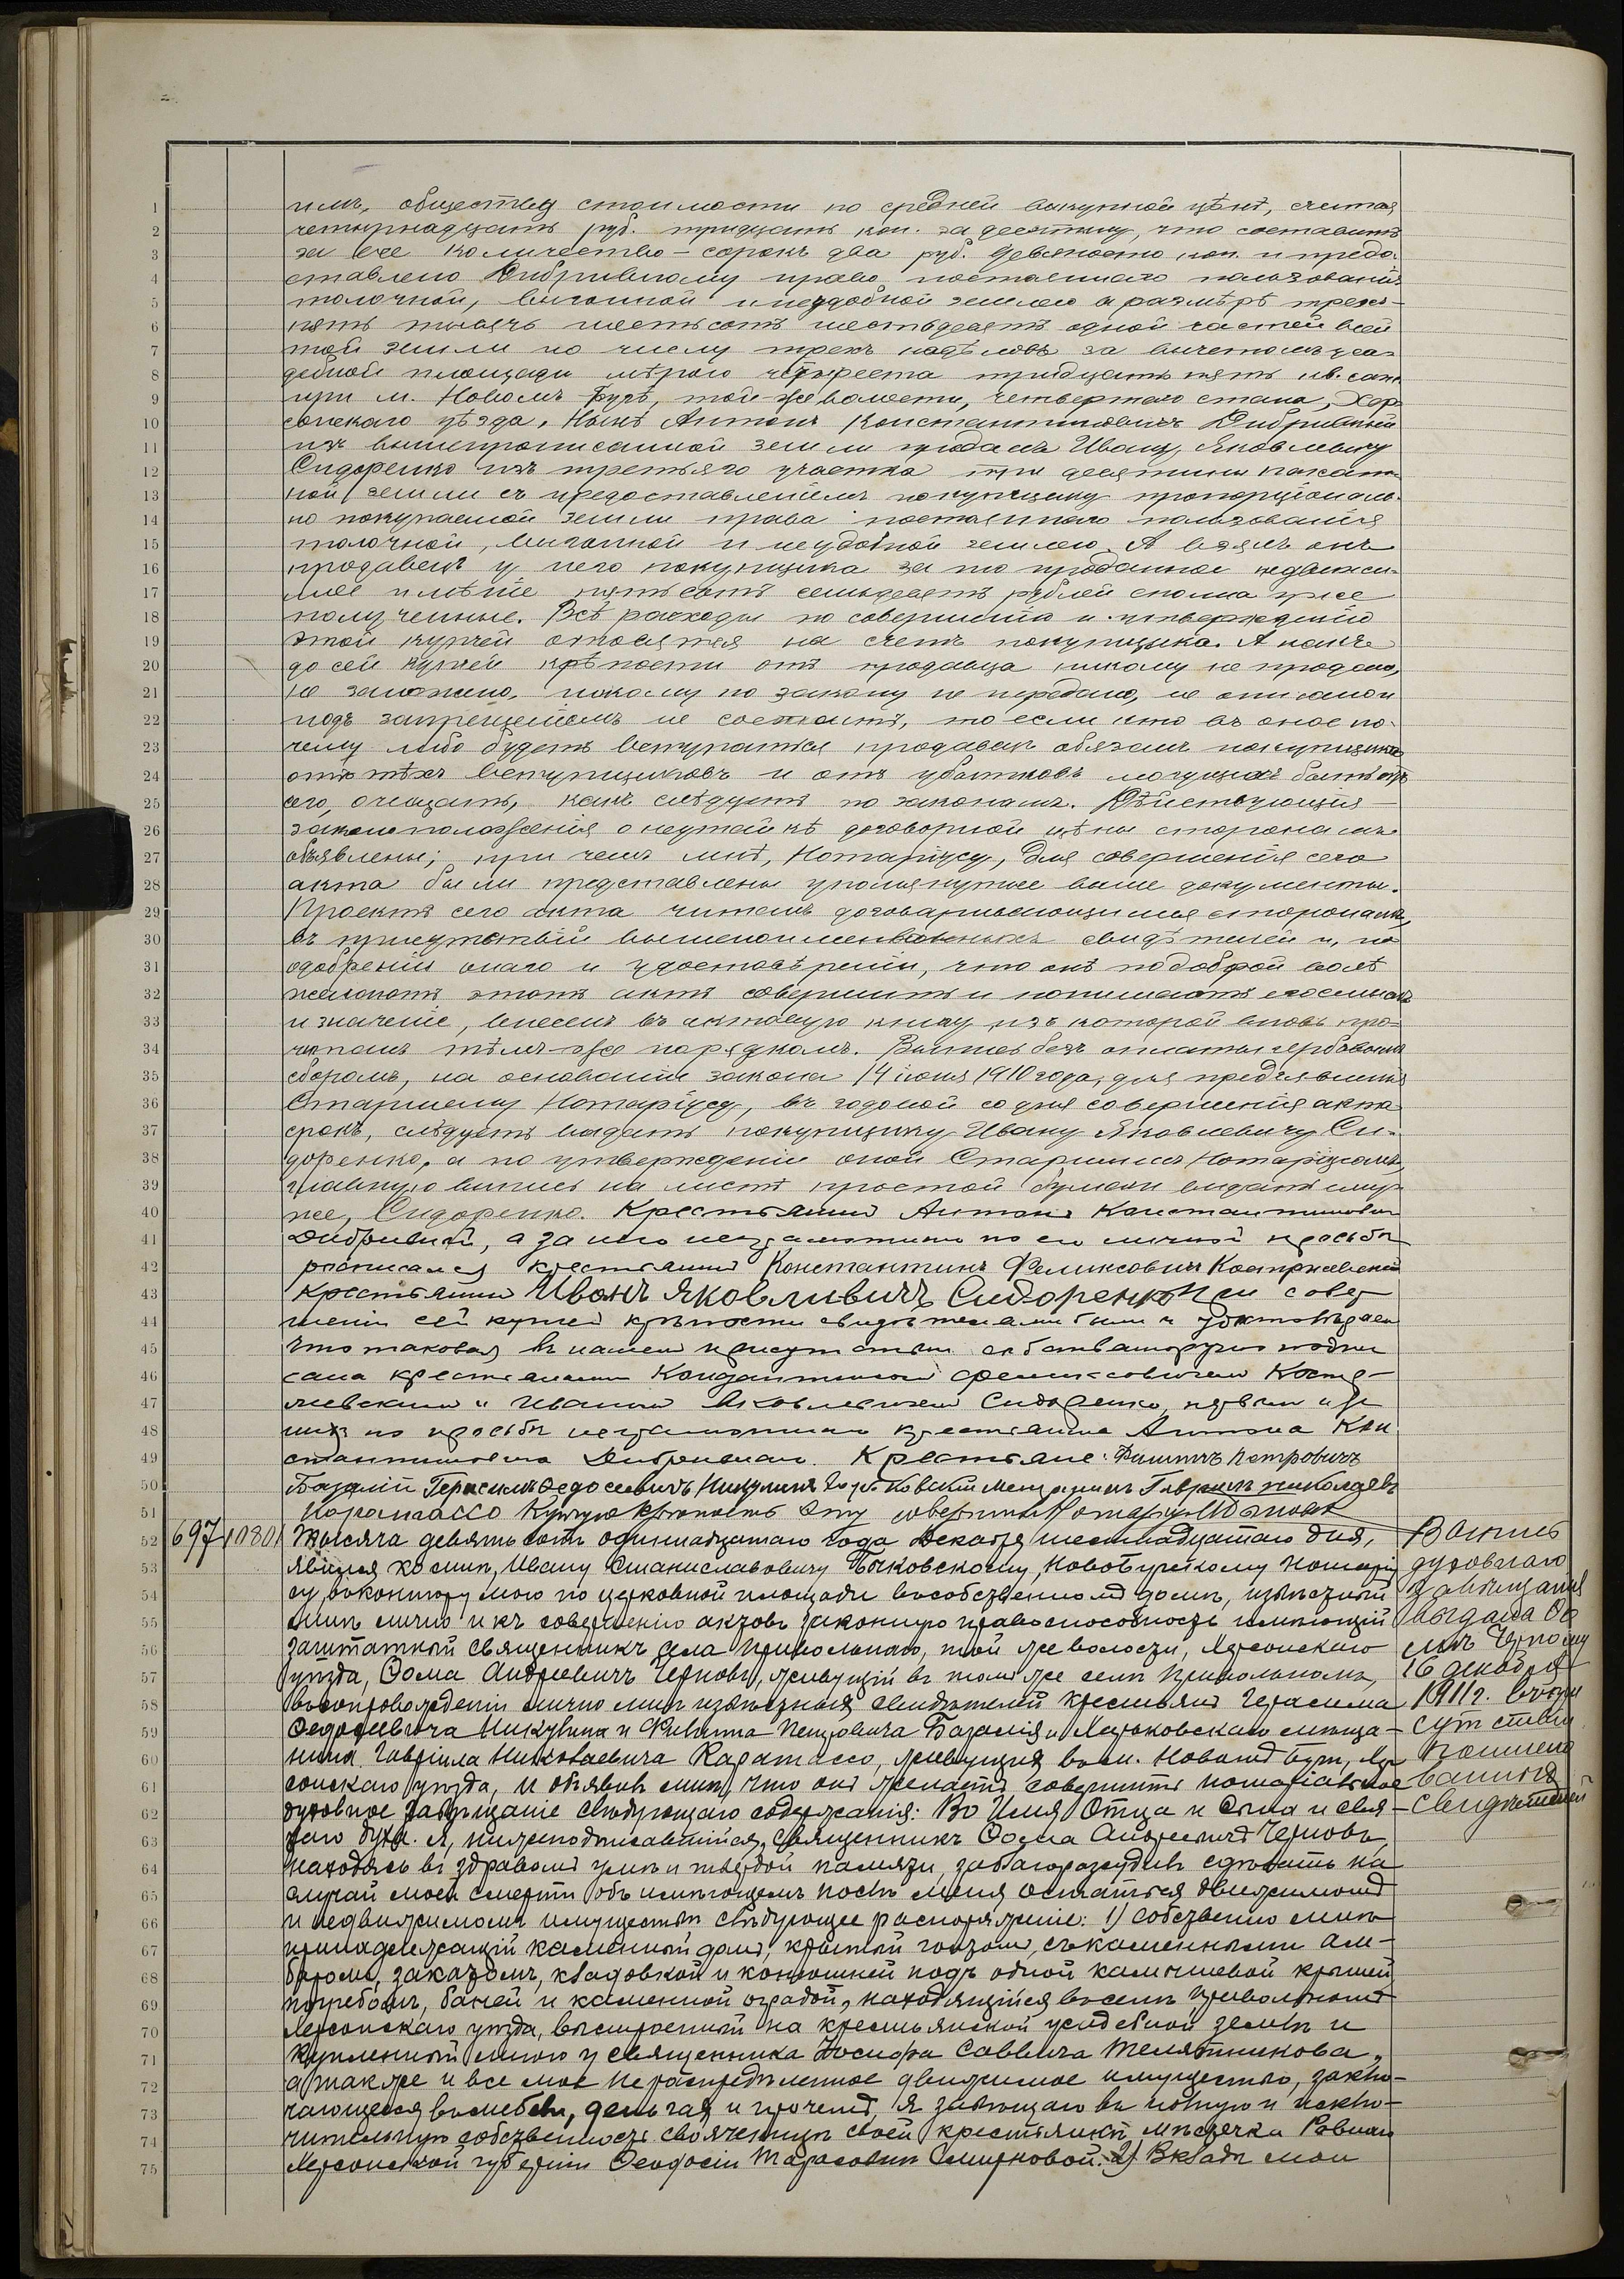 имъ, обществу стоимости по средней выкупной цѣнѣ, считая
четырнадцать руб. тридцать коп. за десятину, что составитъ
за все количество – сорокъ два руб. девяносто коп. и предо-
ставлено Дибривному право постояннаго пользованія
толочной, выгонной и неудобной землею в размѣрѣ трехъ-
пять тысячъ шестьсотъ шестьдесятъ одной частей всей
той земли по числу трехъ надѣловъ за вычетомъ уса-
дебной площади мѣрою четыреста тридцать пять кв. саж.
при м. Новомъ-Бугѣ, той-же волости, четвертаго стана, Хер-
сонскаго уѣзда. Нынѣ Антонъ Константиновичъ Дибривный
изъ вышепрописанной земли продалъ Ивану Яковлевичу
Сидоренко изъ третьяго участка три десятины пахат-
ной земли съ предоставленіемъ покупщику пропорціональ-
но покупаемой земли права постояннаго пользованія
толочной, выгонной и неудобной землею. А взялъ онъ
продавецъ у него покупщика за то проданное недвижи-
мое имѣніе пятьсотъ семьдесятъ рублей сполна уже
полученные. Всѣ расходы по совершенію и утвержденію
этой купчей относятся на счетъ покупщика. А какъ
до сей купчей крѣпости отъ продавца никому не продано,
не заложено, никому по закону не передано, не описано и
подъ запрещеніемъ не состоитъ, то если кто въ оное по-
чему либо будетъ вступаться продавец обязанъ покупщика
отъ тѣхъ вступщиковъ и отъ убытковъ могущихъ быть отъ
сего, очищать, какъ слѣдуетъ по законамъ. Дѣйствующія
законоположенія о неутайкѣ договорной цѣны сторонамъ
объявлены; при чемъ мнѣ, Нотаріусу, для совершенія сего
акта были представлены упомянутые выше документы.
Проектъ сего акта читанъ договаривающимся сторонамъ,
въ присутствіи вышепоименованныхъ свидѣтелей и, по
одобреніи онаго и удостовѣреніи, что онѣ по доброй волѣ
желаютъ этотъ актъ совершить и понимаютъ его смыслъ
и значеніе, внесенъ въ актовую книгу, изъ которой вновь про-
читанъ тѣмъ-же порядкомъ. Выпись безъ оплаты гербовымъ
сборомъ, на основаніи закона 14 іюня 1910 года, для предъявленія
Старшему Нотаріусу, въ годовой со дня совершенія акта
срокъ, слѣдуетъ выдать покупщику Ивану Яковлевичу Си-
доренко, а по утвержденіи оной Старшимъ Нотаріусомъ,
главную выпись на листѣ простой бумаги выдать ему-
же, Сидоренко. Крестьянинъ Антонъ Константиновичъ
Дибривный, а за него неграмотнаго по его личной просьбѣ
росписался крестьянинъ Константинъ Феликсовичъ
Крестьянинъ Иванъ Яковливичъ Сидоренко При совер-
шеніи сей купчей крѣпости свидѣтелями были и удостовѣряемъ
что таковая въ нашемъ присутствіи собственоручно подпи
сана крестьянами Константиномъ Феликсовичемъ
и Иваномъ Яковлевичемъ Сидоренко, первымъ изъ
нихъ по просьбѣ неграмотнаго крестьянина Антона Кон
стантиновича Дибривнаго. Крестьяне: Филиппъ Петровичъ
Базалій Герасимъ Федосеевичъ Никулинъ Харьковскій Мещанинъ Гавріилъ николаевъ
Каратассо Купчую крѣпость эту совершилъ Нотаріусъ
697 1180 Тысяча девятьсотъ одиннадцатаго года Декабря шестнадцатаго дня,
явился ко мнѣ, Ивану Станиславовичу Быковскому, Новобугскому Нотарі
усу, въ контору мою по церковной площади въ собственномъ домѣ, извѣстный
мнѣ лично и къ совершенію актовъ законную правоспособность имѣющій
заштатный священникъ села Привольнаго, той же волости, Херсонскаго
уѣзда, Ѳома Андреевичъ Черновъ, живущій въ томъ же селѣ Привольномъ,
въ сопровожденіи лично мнѣ извѣстныхъ свидѣтелей крестьянъ Герасима
Ѳедосеевича Никулина и Филиппа Петровича Базалія и Харьковскаго мѣща-
нина Гавріила Николаевича Каратассо, живущихъ въ м. Новомъ Бугѣ, Хер
сонскаго уѣзда, и объявилъ мнѣ, что онъ желаетъ совершить нотаріальное
духовное завѣщаніе слѣдующаго содержанія: Во Имя Отца и Сына и Свя-
таго Духа. Я, нижеподписавшійся, Священникъ Ѳома Андреевичъ Черновъ,
находясь въ здравомъ умѣ и твердой памяти, заблагоразсудилъ сдѣлать на
случай моей смерти объ имѣющемъ послѣ меня остаться движимомъ
и недвижимомъ имуществѣ слѣдующее распоряженіе: 1) Собственно мнѣ
принадлежащій каменный домъ, крытый гонтомъ, съ каменными ам-
баромъ, кладовкой и конюшней подъ одной камышевой крышей
погребомъ, баней и каменной оградой, находящійся въ селѣ Привольномъ
Херсонскаго уѣзда, выстроенный на крестьянской усадебной землѣ и
купленный мною у священника Іосифа Саввича Телятникова,
а также и все мое нераспредѣленное движимое имущество, заклю-
чающееся въ мебели, деньгахъ и прочемъ, я завѣщаю въ полную и исклю-
чительную собственность свояченицѣ своей крестьянкѣ мѣстечка Ровнаго
Херсонской губерніи Ѳеодосіи Тарасовнѣ Смирновой. 2) Вклады мои
Выпись
духовнаго
завѣщанія
выдана Ѳо
мѣ Черному
16 декабря
1911г. въ при
сутствіи
поимено
ванныхъ
свидѣтелей